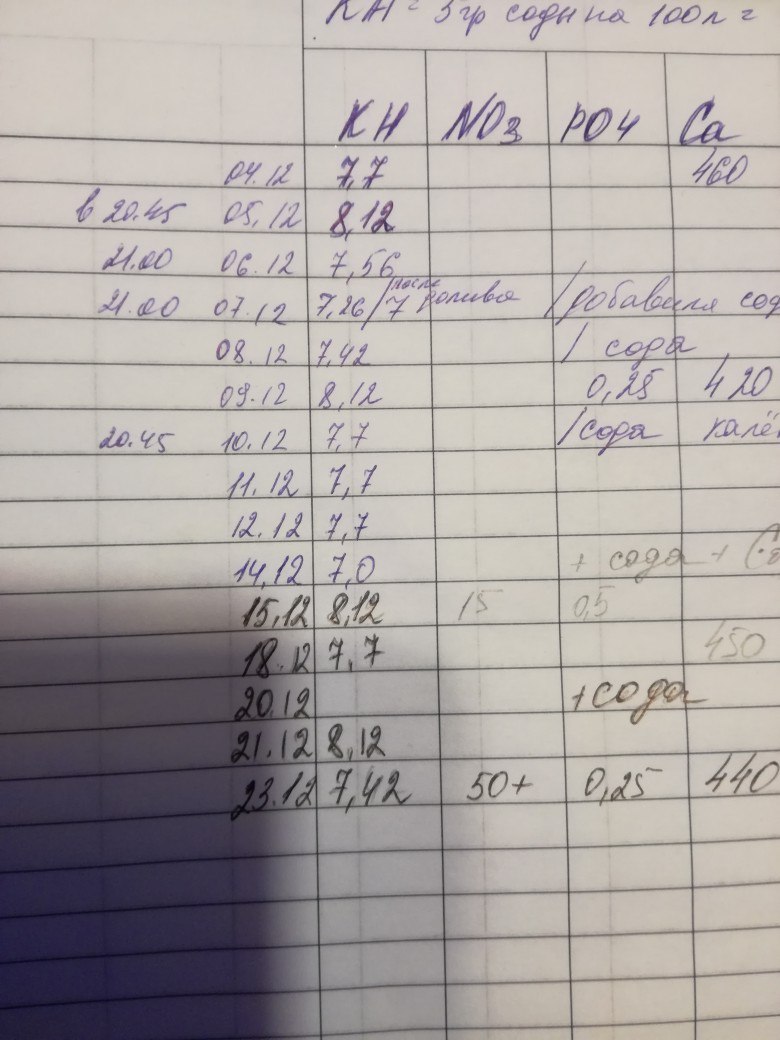 КН = 3 гр соды на 100л =
КН NO3 PO4 Ca
04.12 7,7 460
в 20.45 05.12 8,12
21.00 06.12 7,56
21.00 07.12 7,26 / после 7 полива / добавила сод
08.12 7,42 / сода
09.12 8,12 0,25 420
20.45 10.12 7,7 / сода
11.12 7,7
12.12 7,7
14,12 7,0 + сода +
15,12 8,12 15 0,5
18.12 7,7 450
20.12 + сода
21.12 8,12
23.12 7,42 50+ 0,25 440